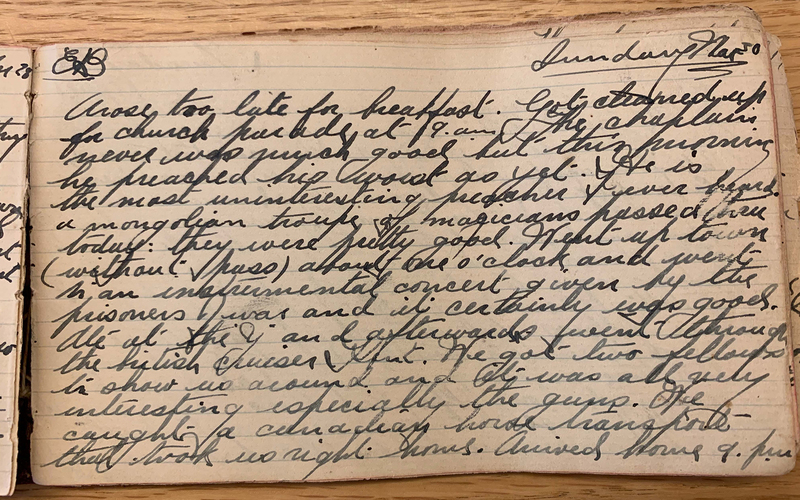 EB Sunday Mar 30
Arose too late for breakfast. Got cleaned up
for church parade at 9. am. The chaplain
never was much good but this morning
he preached his worst as yet. He is
the most uninteresting preacher I ever heard.
a mongolian troupe of magicians passed thru
today. they were pretty good. Went up town
(without pass) about one o'clock and went
to an instrumental concert given by the
prisoners of war and it certainly was good.
Ate at the Y and afterwards went through
the british cruiser Kent. We got two fellows
to show us around and it was all very
interesting especially the guns. We
caught a canadian horse transport
that took us right home. Arrived home 9. pm